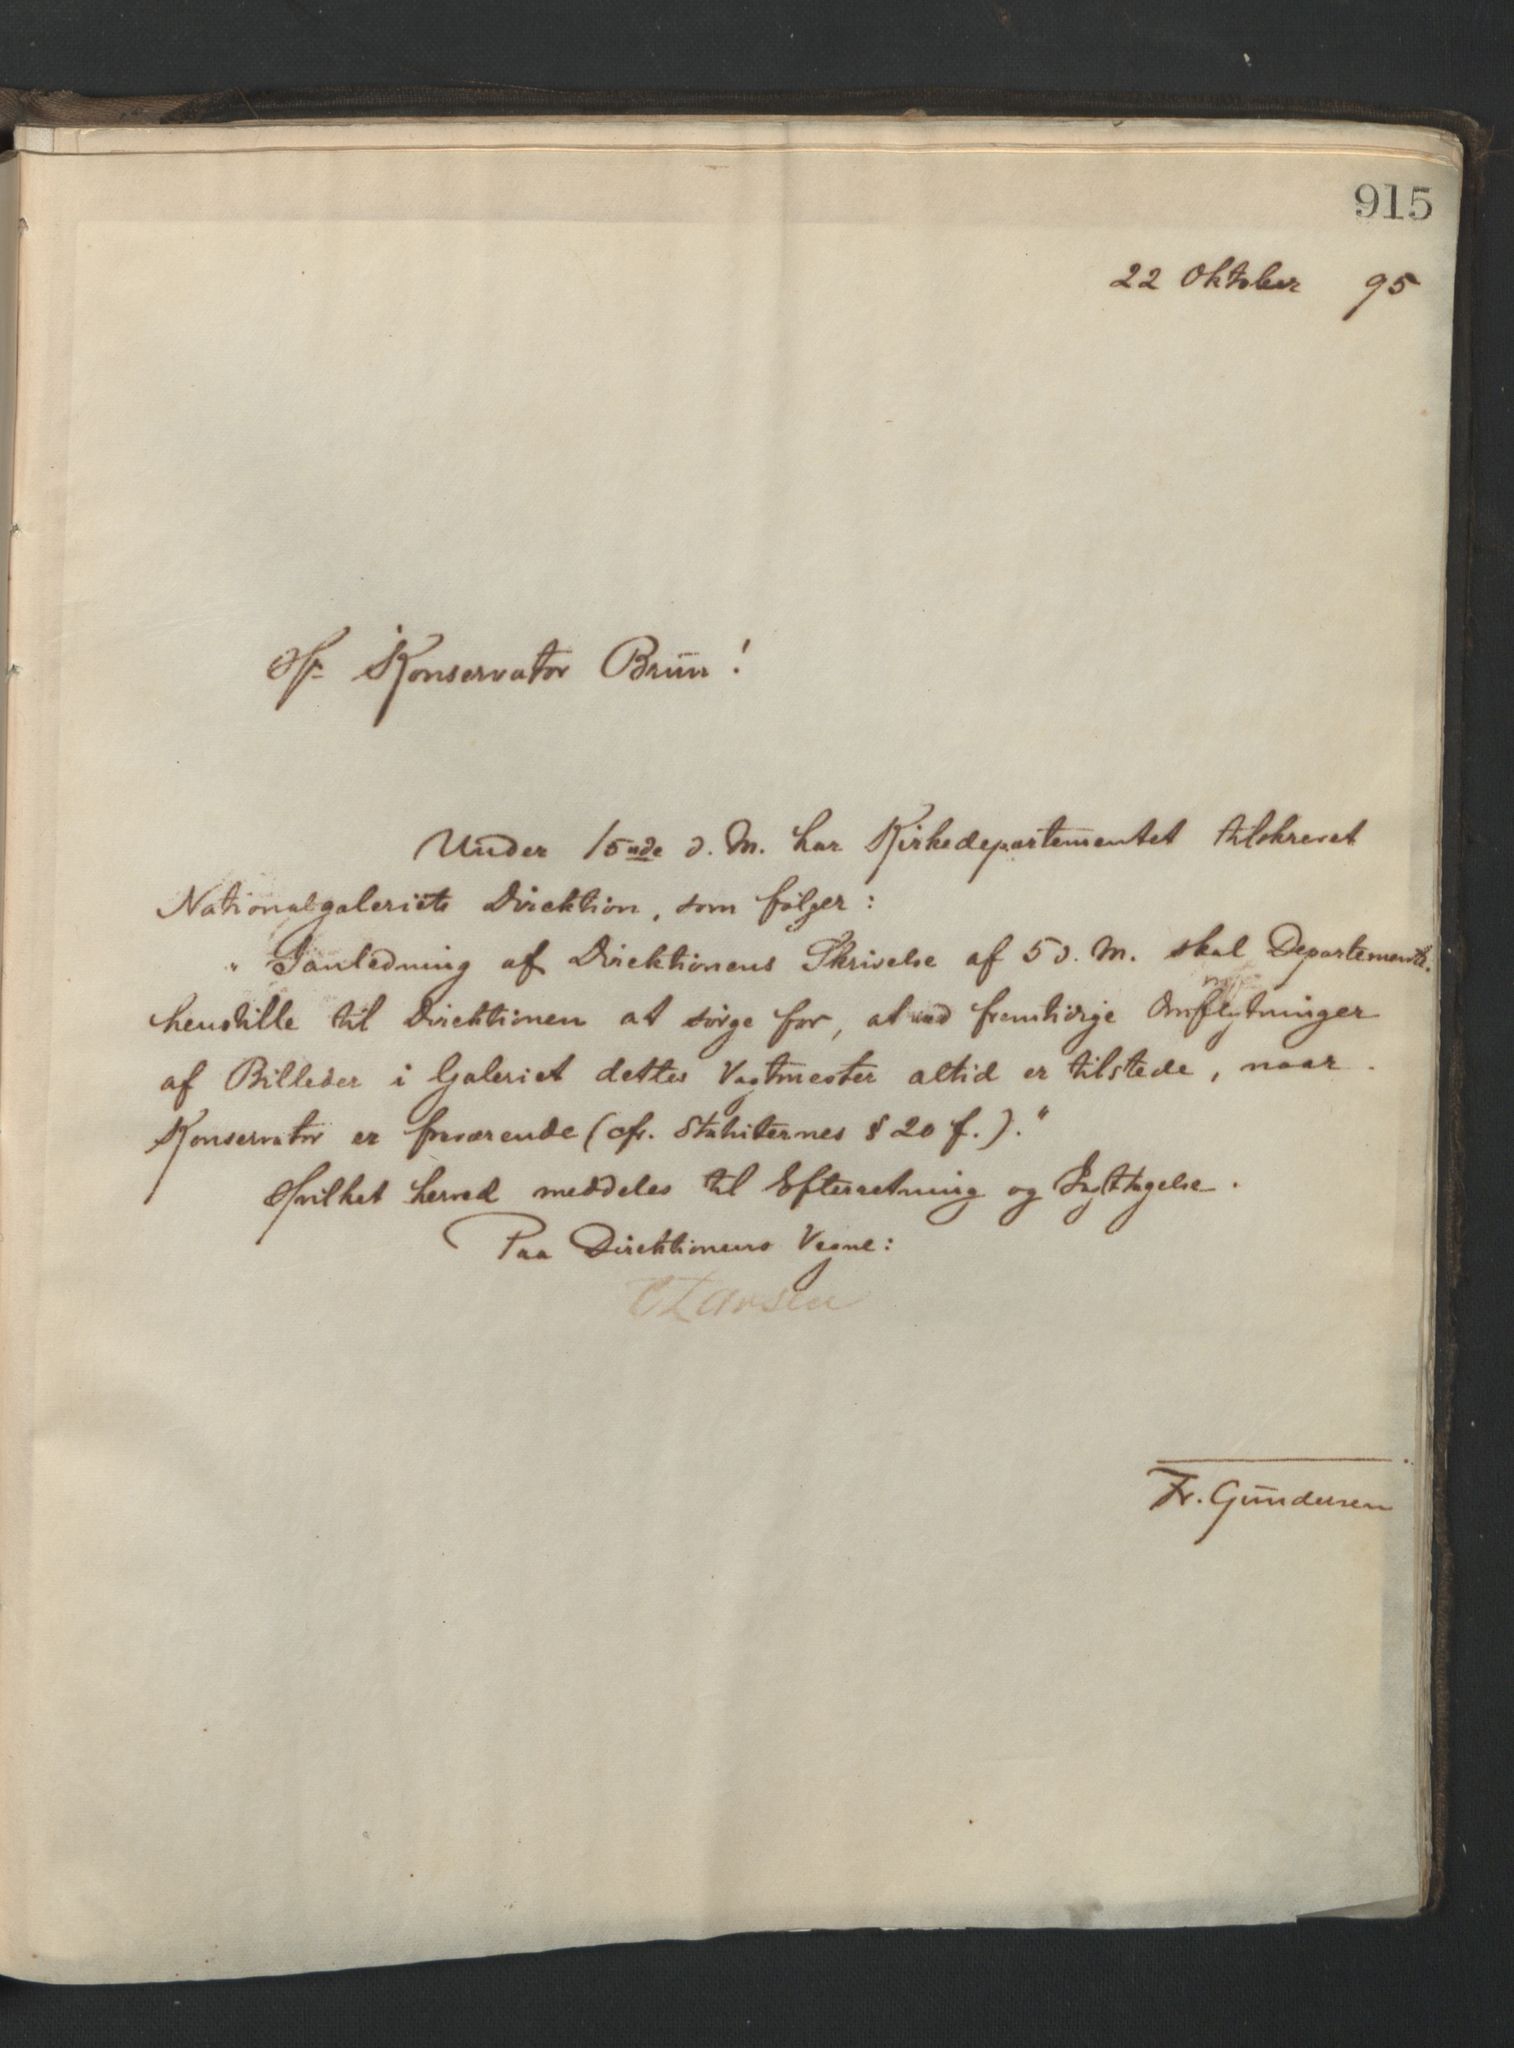 915
22 Oktober 95
Hr. Konservator Brun!
Under 15nde d. M. har Kirkedepartementet tilskrevet
Nationalgaleriets Direktion, som følger:
„ I anledning af Direktionens Skrivelse af 5 d. M. skal Departementet
henstille til Direktionen at sørge for, at ved fremtidige Omflytninger
af Billeder i Galeriet dettes Vagtmester altid er tilstede, naar
Konservator er fraværende (cfr. Statuternes § 20 f.)."
Hvilket herved meddeles til Efterretning og Iagttagelse.
Paa Direktionens Vegne:
C Larsen
Fr. Gundersen